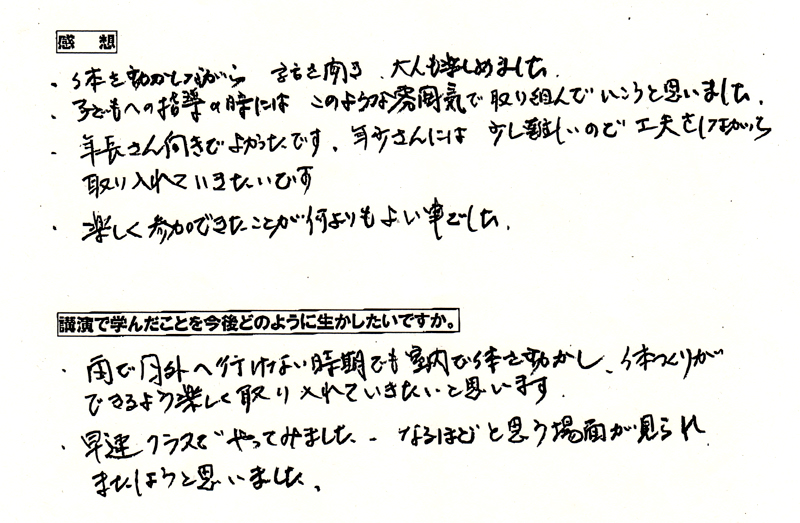 感 想
・体を動かしながら 向き、大人も楽しめました。
・子どもへの指導の時には このような雰囲気で取り組んでいこうと思いました。
・年長さん向きでよかったです。年少さんには 少し難しいので工夫をしながら
取り入れていきたいです
・楽しく参加できたことが何よりもよい事でした。
講演で学んだことを今後どのように生かしたいですか。
・雨で戸外へ行けない時期でも室内で体を動かし、体つくりが
できるよう楽しく取り入れていきたいと思います。
・早速クラスでやってみました。なるほどと思う場面が見られ
またしようと思いました。